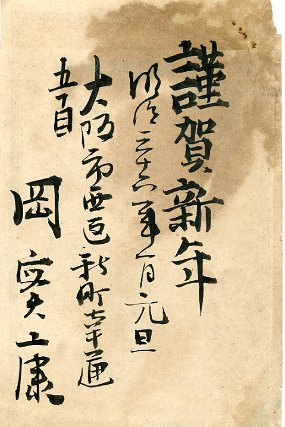 謹賀新年
明治三十六年一月元旦
大阪市西區新町通
五丁目
岡 實康